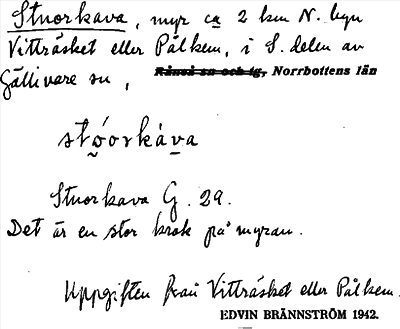 Stuorkava, myr ca 2 km N. byn
Vitträsket eller Pålkem, i S. delen av
Gällivare sn,
Råneå sn och tg, Norrbottens län
stóorkàva
Stuorkava G. 29.
Det är en stor krok på myran.
Uppgiften från Vitträsket eller Pålkem.
EDVIN BRÄNNSTRÖM 1942.